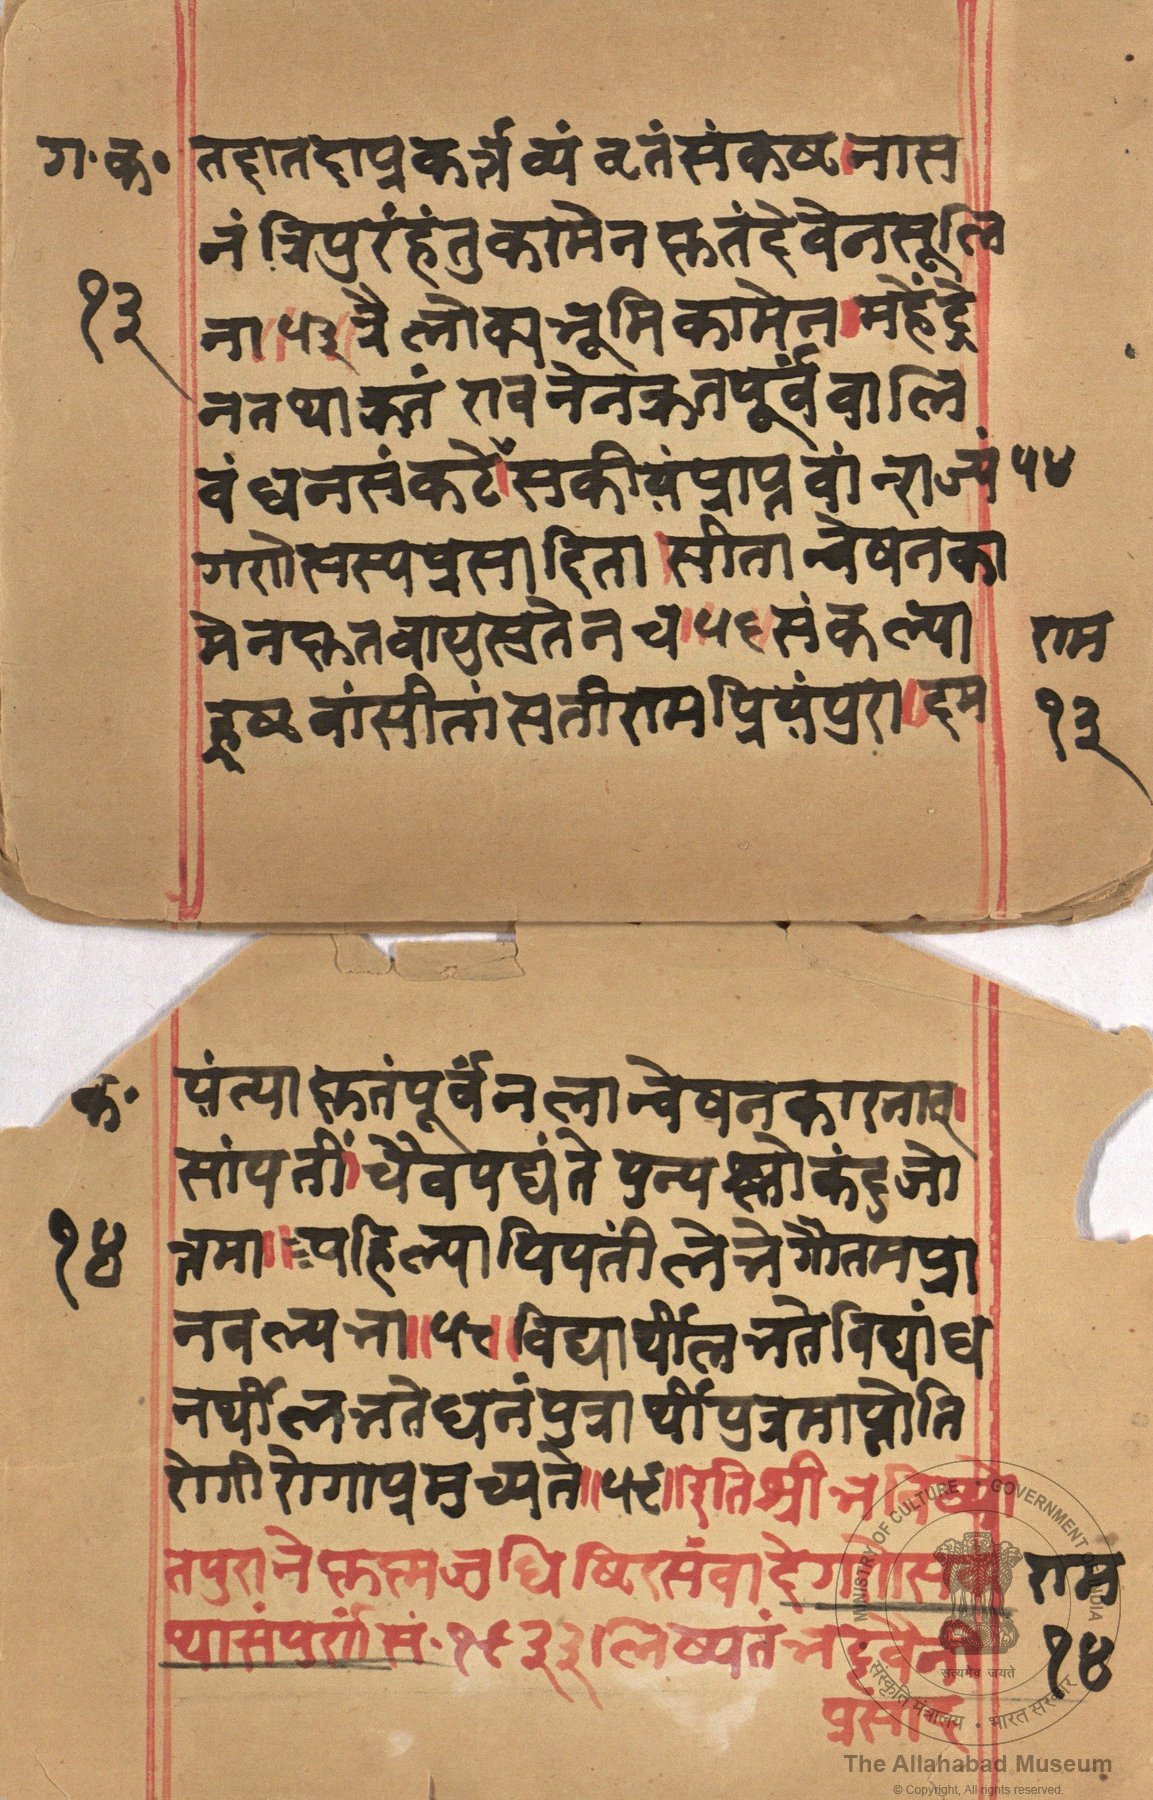 ग॰ क॰ तदातदाप्रकर्त्तव्यं व्रतंसंकष्ट।नास
नं त्रिपुरंहंतुकामेन कृतंदेवेनसूलि
१३
ना॥५३॥त्रैलोक्यभूमिकामेन।महेंद्रे
नतथाकृतं रावनेनकृतपूर्वं वालि
वंधनसंकटे।सकीयंप्राप्नवांन्राज्यं ५४
गणेसस्यप्रसादिता।सीतान्वेषनका
मेनकृतवायुसुतेन च॥५६॥संकल्पा
राम
दृष्टवांसीतांसतीरामप्रियंपुरा।दम
१३
क॰ यंत्याकृतंपूर्वंनलान्वेषनकारनात्।
सांपतीं।चैवपद्यंते पुन्यश्लोकंदुजो
१४
त्तमा॥पहिल्यापिपतीलेभेगौतमप्रा
नवल्यभा॥५८॥विद्यार्थीलभतेविद्यांध
नर्थीलभतेधनंपुत्रार्थीपुत्रमाप्नोति
रोगीरोगाप्रमुच्यते॥५९॥इतिश्रीभविष्यो
तपुरानेकृस्मजुधिष्टिरसंवादेगणेसक
राम
थासंपुर्णं सं॰१९३३लिष्यतंभ
१४
प्रसाद
MINISTRY OF CULTURE · GOVERNMENT OF INDIA
सत्यमेव जयते
संस्कृति मंत्रालय · भारत सरकार
The Allahabad Museum
© Copyright, All rights reserved.